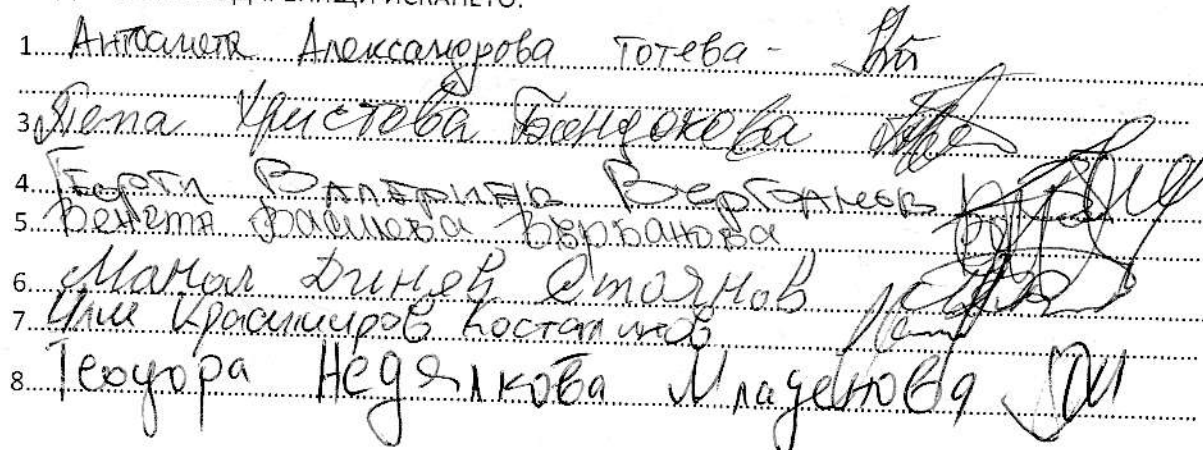 ИСКАНЕТО:
1. Антоанета Александрова Тотева -
3. Пепа Христова Бандокова
4. Георги Валериев Върбанов
5. Венета Василева Върбанова
6. Манол Динев Стоянов
7. Илия Красимиров Костадинов
8. Теодора Недялкова Младенова